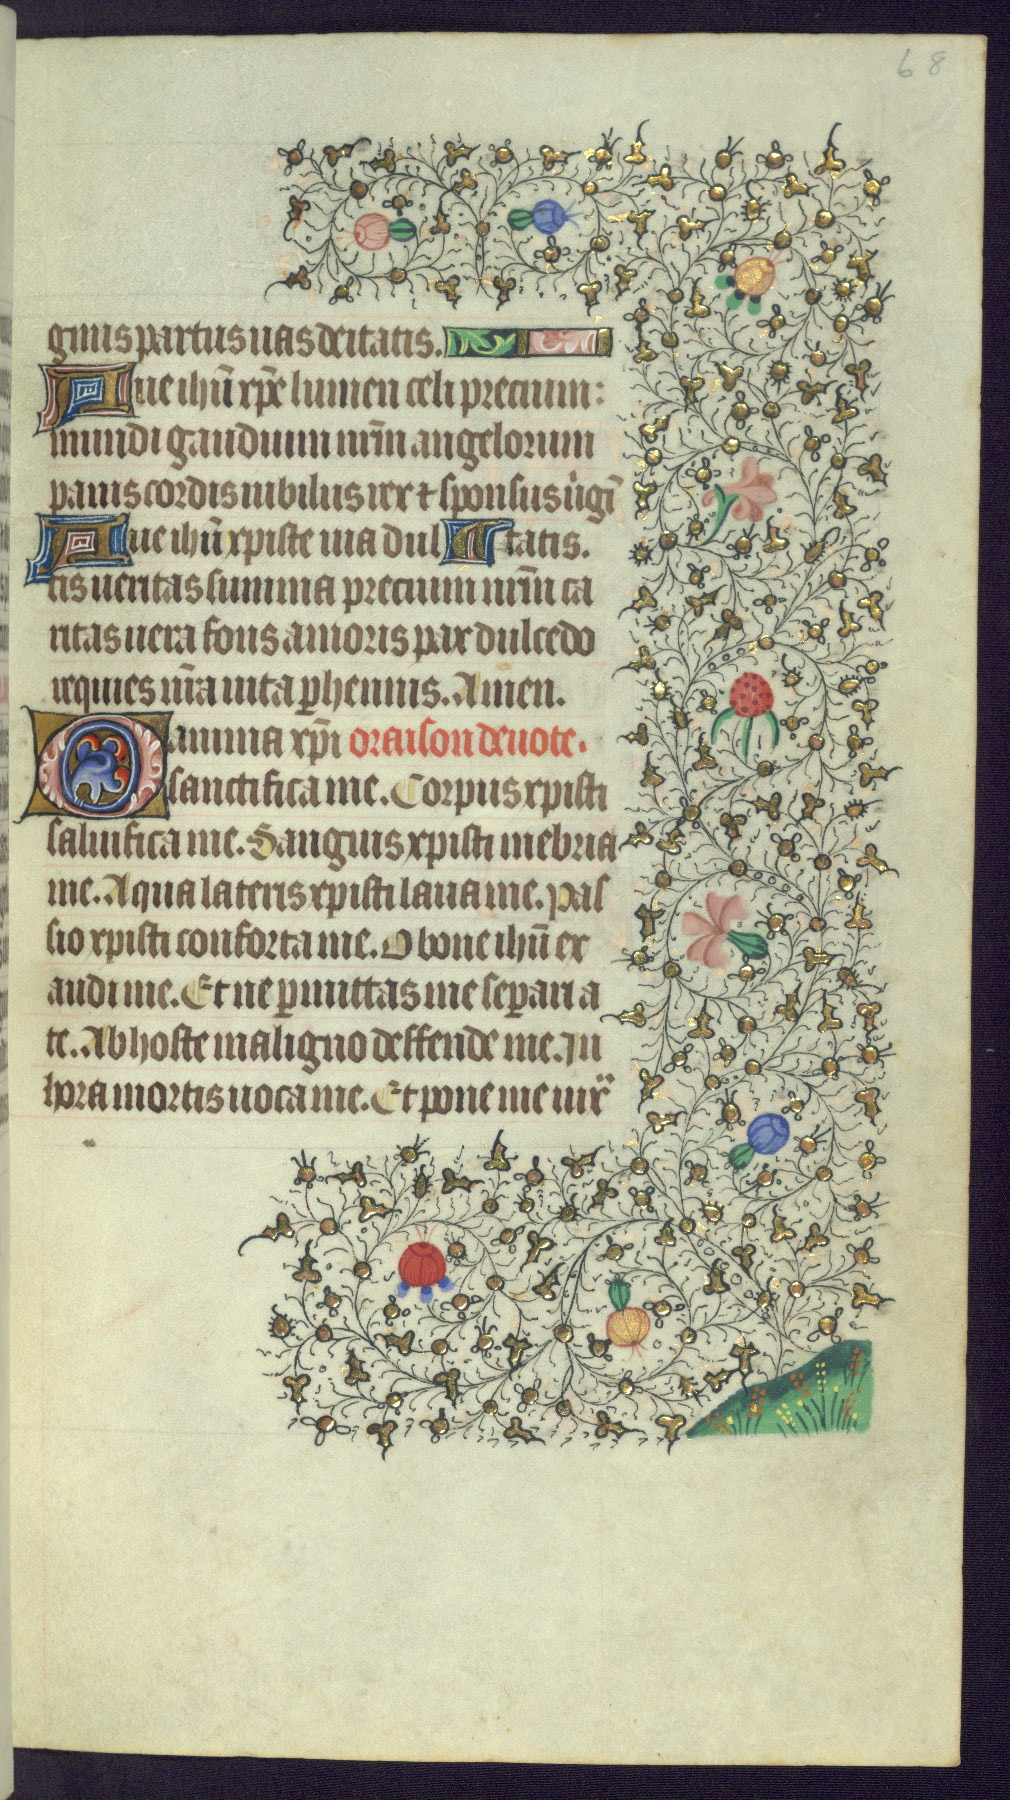 68
ginis partus uas deitatis.
Aue ihū xp̄e lumen celi precium:
mundi gaudium nr̄m angelorum
panis cordis iubilus rex ⁊ sponsus uīgī
Aue ihū xpiste uia dul tatis.
cis ueritas summa precium nr̄m ca
ritas uera fons amoris pax dulcedo
requies ur̄a uita ꝑhennis. Amen.
O anima xp̄i oraison deuote.
sanctifica me. Corpus xpisti
saluifica me. Sanguis xpisti inebria
me. Aqua lateris xpisti laua me. Pas
sio xpisti conforta me. O bone ihū ex
audi me. Et ne ꝑmittas me seꝑari a
te. Ab hoste maligno deffende me. In
hora mortis uoca me. Et pone me iux